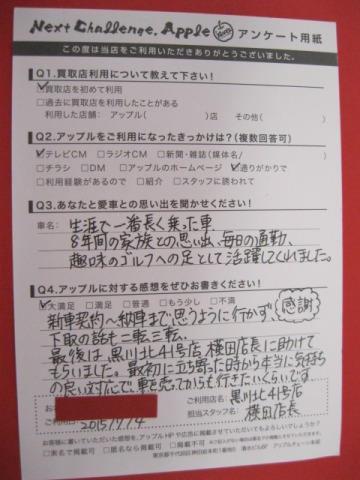 Next Challenge, Apple アンケート用紙
この度は当店をご利用いただきありがとうございました。
Q1.買取店利用について教えて下さい!
☑買取店を初めて利用
□過去に買取店を利用したことがある
利用した店舗: アップル( )店 その他( )
Q2.アップルをご利用になったきっかけは?(複数回答可)
☑テレビCM □ラジオCM □新聞・雑誌(媒体名/ )
□チラシ □DM □アップルのホームページ ☑通りがかりで
□利用経験があるので □紹介 □スタッフに誘われて
Q3.あなたと愛車との思い出を聞かせください!
車名: 生涯で一番長く乗った車
8年間の家族との思い出、毎日の通勤、
趣味のゴルフへの足として活躍してくれました。
Q4.アップルに対する感想をぜひお書きください!
☑大満足 □満足 □普通 □もう少し □不満
感謝
新車契約〜納車まで思うように行かず、
下取の話も二転三転。
最後は黒川北41号店 横田店長に助けて
もらいました。最初に立ち寄った時から本当に気持ち
の良い対応で、車を売ってからも行きたいくらいです。
お名
ご利用日 2015/7/4
ご利用店名: 黒川北41号店
担当スタッフ名: 横田店長
お客様に書いていただいた感想を、アップルHPや広告に掲載させていただいてもよろしいでしょうか?
□実名で掲載可 □匿名なら掲載可 □掲載不可
東京都千代田区神田錦本町1番地5 清水ビル6F アップルチェーン本部